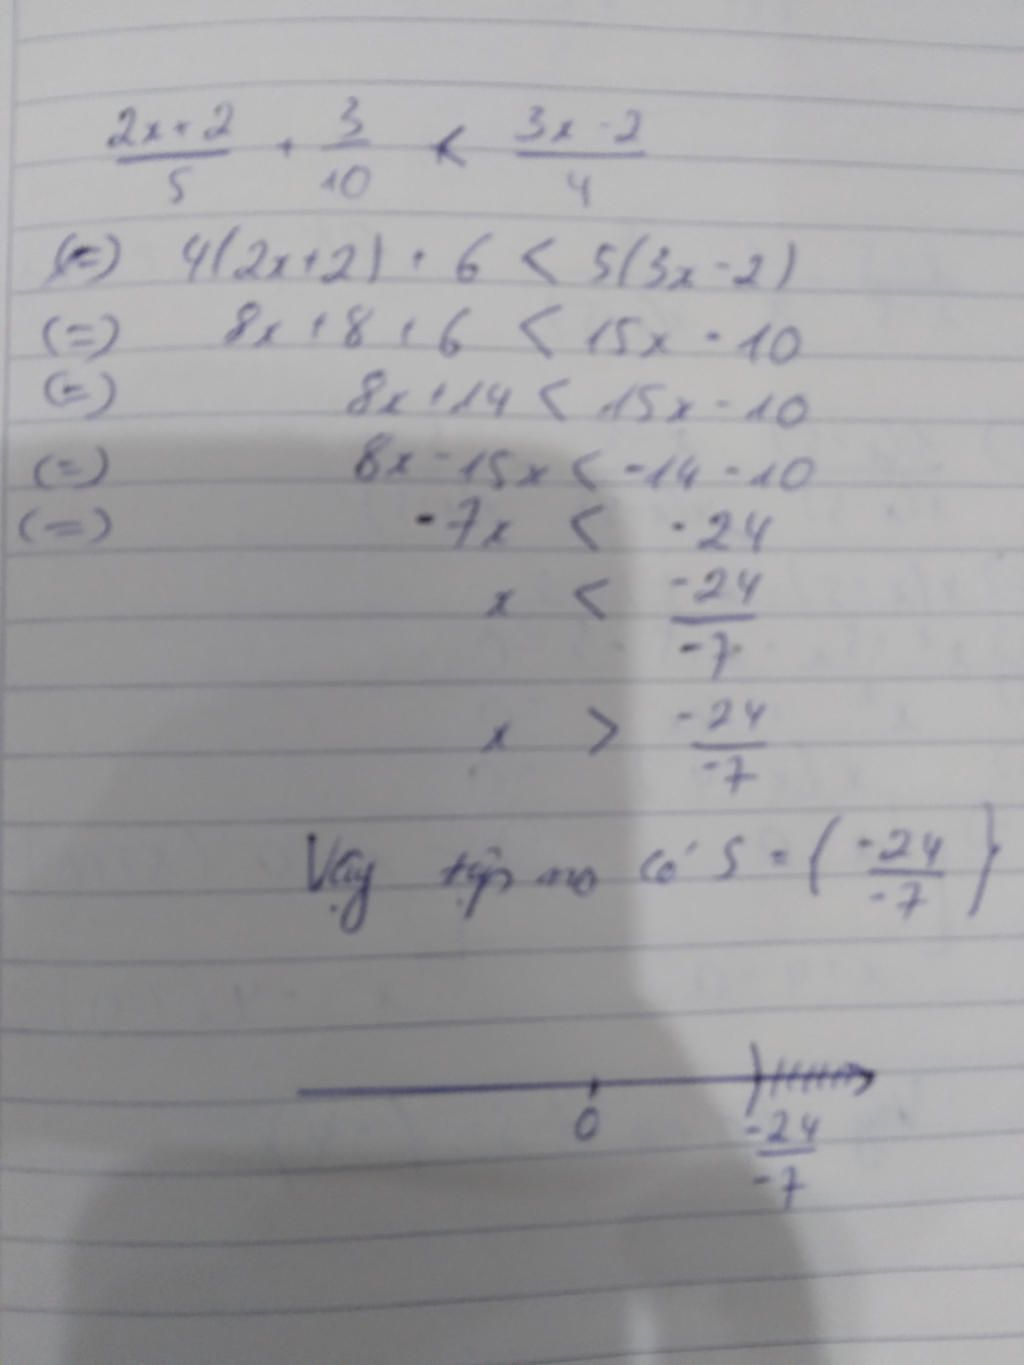 2x+2/5 + 3/10 < 3x-2/4
(=) 4(2x+2) + 6 < 5(3x-2)
(=) 8x+8+6 < 15x-10
(=) 8x+14 < 15x-10
(=) 8x-15x < -14-10
(=) -7x < -24
x < -24/-7
x > -24/-7
Vậy tập no có S = { -24/-7 }
0
-24/-7